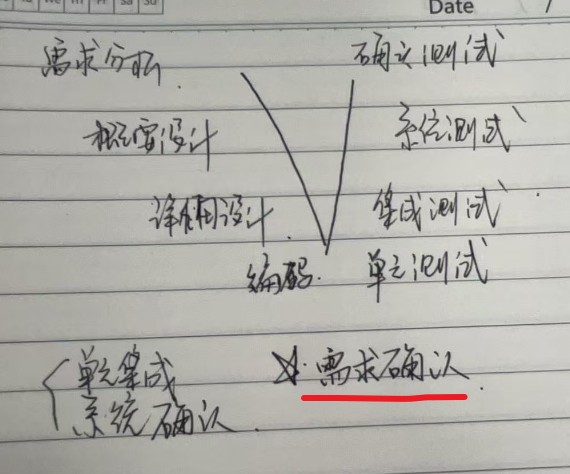 Date
需求分析 确认测试
概要设计 系统测试
详细设计 集成测试
编码 单元测试
单元集成 需求确认
系统确认